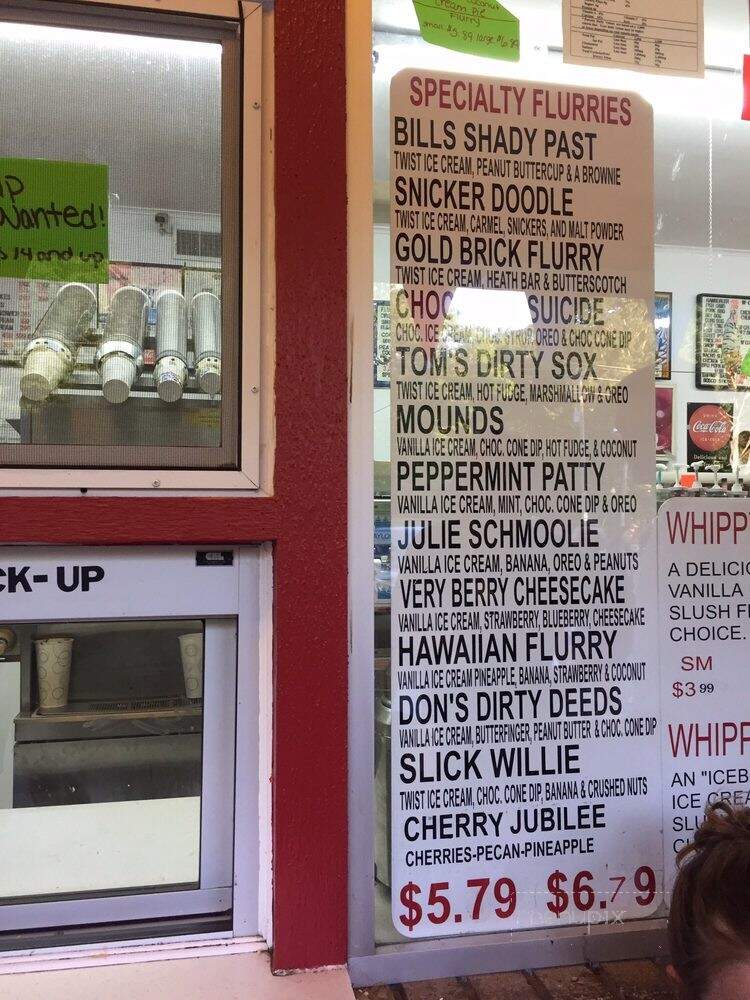 cream Pie
Flurry
small $5.89 large $6.89
Wanted!
14 and up
CK-UP
SPECIALTY FLURRIES
BILLS SHADY PAST
TWIST ICE CREAM, PEANUT BUTTERCUP & A BROWNIE
SNICKER DOODLE
TWIST ICE CREAM, CARMEL, SNICKERS, AND MALT POWDER
GOLD BRICK FLURRY
TWIST ICE CREAM, HEATH BAR & BUTTERSCOTCH
CHOC SUICIDE
CHOC. ICE CREAM, CHOC. SYRUP, OREO & CHOC CONE DIP
TOM'S DIRTY SOX
TWIST ICE CREAM, HOT FUDGE, MARSHMALLOW & OREO
MOUNDS
VANILLA ICE CREAM, CHOC. CONE DIP, HOT FUDGE, & COCONUT
PEPPERMINT PATTY
VANILLA ICE CREAM, MINT, CHOC. CONE DIP & OREO
JULIE SCHMOOLIE
VANILLA ICE CREAM, BANANA, OREO & PEANUTS
VERY BERRY CHEESECAKE
VANILLA ICE CREAM, STRAWBERRY, BLUEBERRY, CHEESECAKE
HAWAIIAN FLURRY
VANILLA ICE CREAM PINEAPPLE, BANANA, STRAWBERRY & COCONUT
DON'S DIRTY DEEDS
VANILLA ICE CREAM, BUTTERFINGER, PEANUT BUTTER & CHOC. CONE DIP
SLICK WILLIE
TWIST ICE CREAM, CHOC. CONE DIP, BANANA & CRUSHED NUTS
CHERRY JUBILEE
CHERRIES-PECAN-PINEAPPLE
$5.79 $6.79
DRINK
Coca-Cola
ICE-COLD
Delicious and
WHIPP
A DELICIO
VANILLA
SLUSH F
CHOICE.
SM
$3.99
WHIPP
AN "ICEB
ICE CREA
SLU